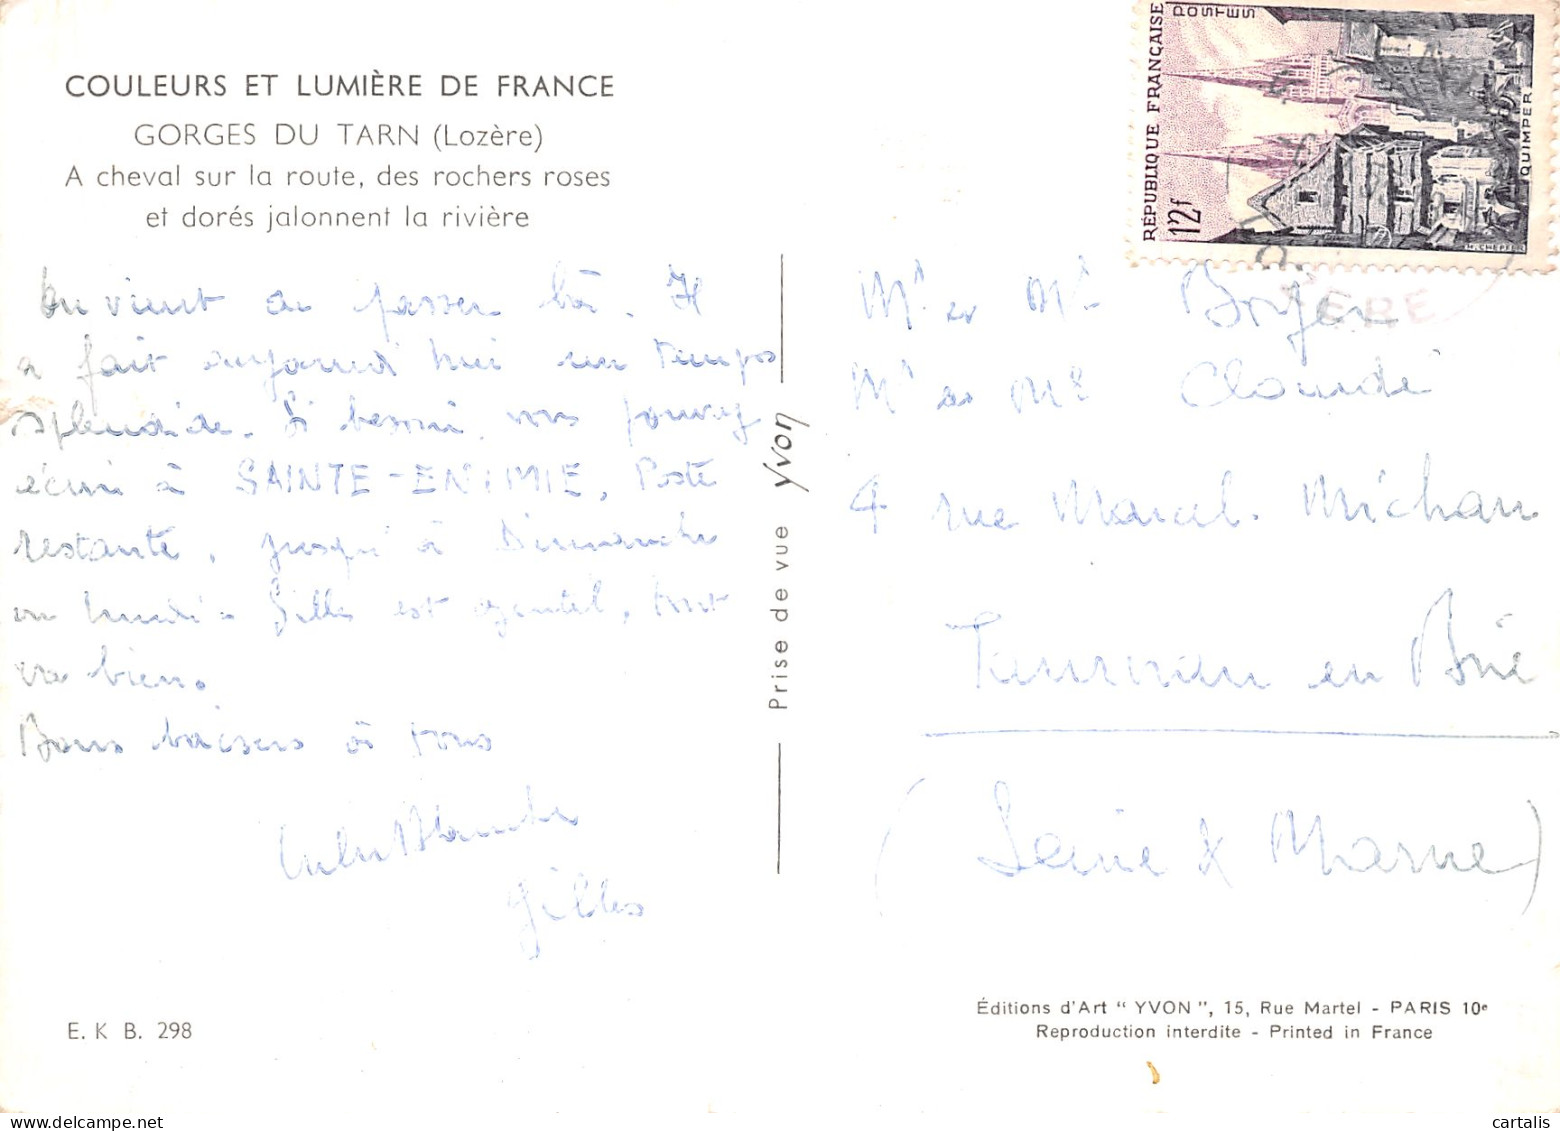 COULEURS ET LUMIÈRE DE FRANCE
GORGES DU TARN (Lozère)
A cheval sur la route, des rochers roses
et dorés jalonnent la rivière
On vient de passer là. Il
a fait aujourd'hui un temps
splendide. Si besoin, vous pouvez
écrire à SAINTE-ENIMIE, Poste
restante, jusqu'à Dimanche
ou lundi. Gilles est gentil, tout
va bien.
Bons baisers à tous
Gilles
E. K B. 298
Prise de vue Yvon
RÉPUBLIQUE FRANÇAISE
POSTES
12f
QUIMPER
Mr et Me Boyer
Mr et Me Claude
4 rue Marcel Michau
Tournan en Brie
(Seine & Marne)
Éditions d'Art " YVON ", 15, Rue Martel - PARIS 10e
Reproduction interdite - Printed in France
cartalis